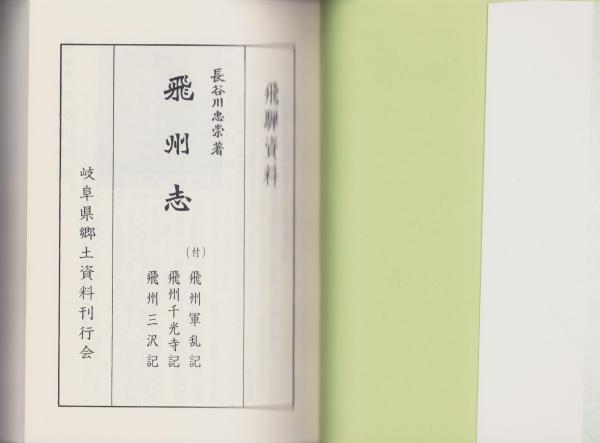 飛騨資料
長谷川忠崇著
飛州志
(付)飛州軍乱記
飛州千光寺記
飛州三沢記
岐阜県郷土資料刊行会